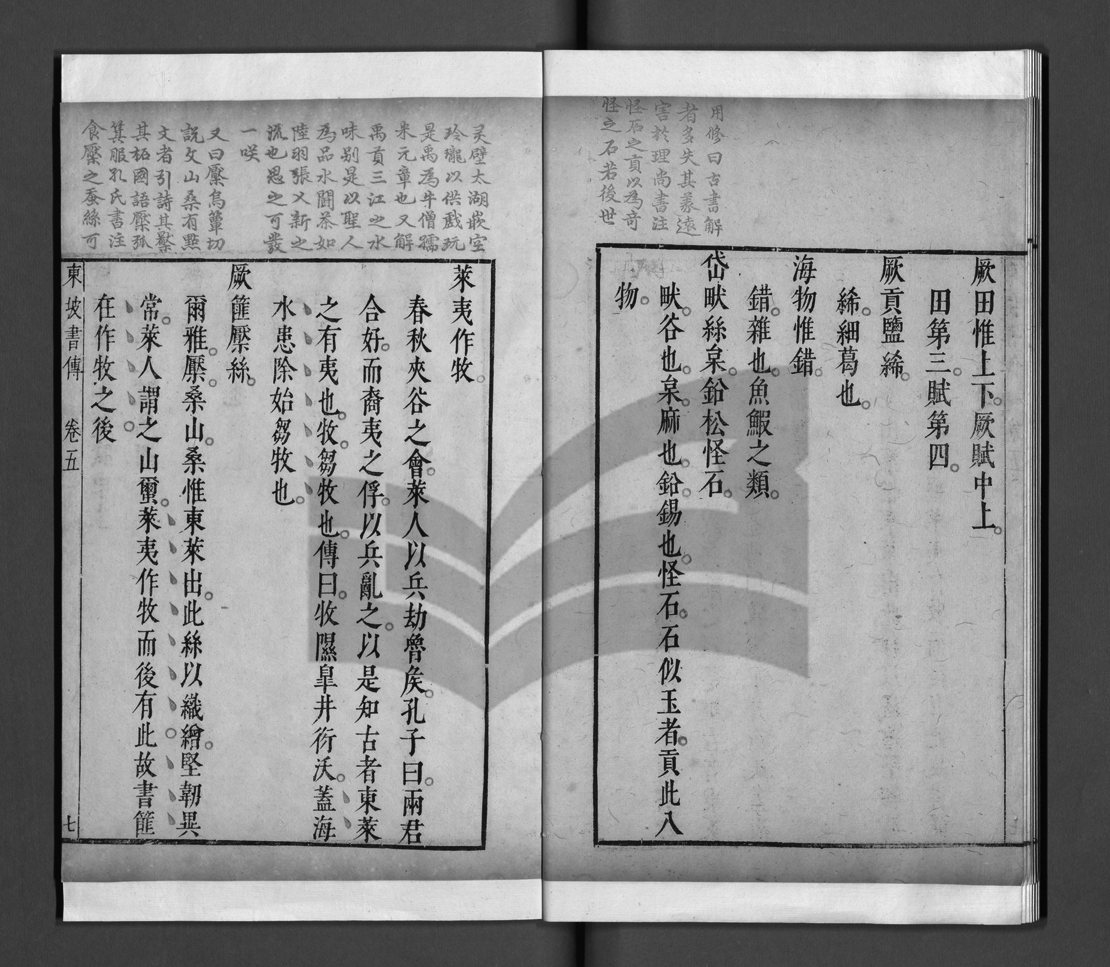 用修曰古書解
者多失其義遠
害於理尚書注
怪石之貢以為奇
怪之石若後世
厥田惟上下厥賦中上
田第三賦第四
厥貢鹽絺
絺細葛也
海物惟錯
錯雜也魚鰕之類
岱畎絲枲鉛松怪石
畎谷也枲麻也鉛錫也怪石石似玉者貢此八
物
灵壁太湖嵌空
玲瓏以供戲玩
是禹為牛僧孺
米元章也又解
禹貢三江之水
味别是以聖人
為品水闘茶如
陸羽張又新之
流也思之可發
一咲
又曰檿烏簟切
説文山桑有點
文者引詩其檿
其柘國語檿弧
箕服孔氏書注
食檿之蚕絲可
萊夷作牧
春秋夾谷之會萊人以兵劫魯矦孔子曰兩君
合好而裔夷之俘以兵亂之以是知古者東萊
之有夷也牧芻牧也傳曰牧隰臯井衍沃蓋海
水患除始芻牧也
厥篚檿絲
爾雅檿桑山桑惟東萊出此絲以織繒堅韌異
常萊人謂之山蠒萊夷作牧而後有此故書篚
在作牧之後
東坡書傳 卷五 七